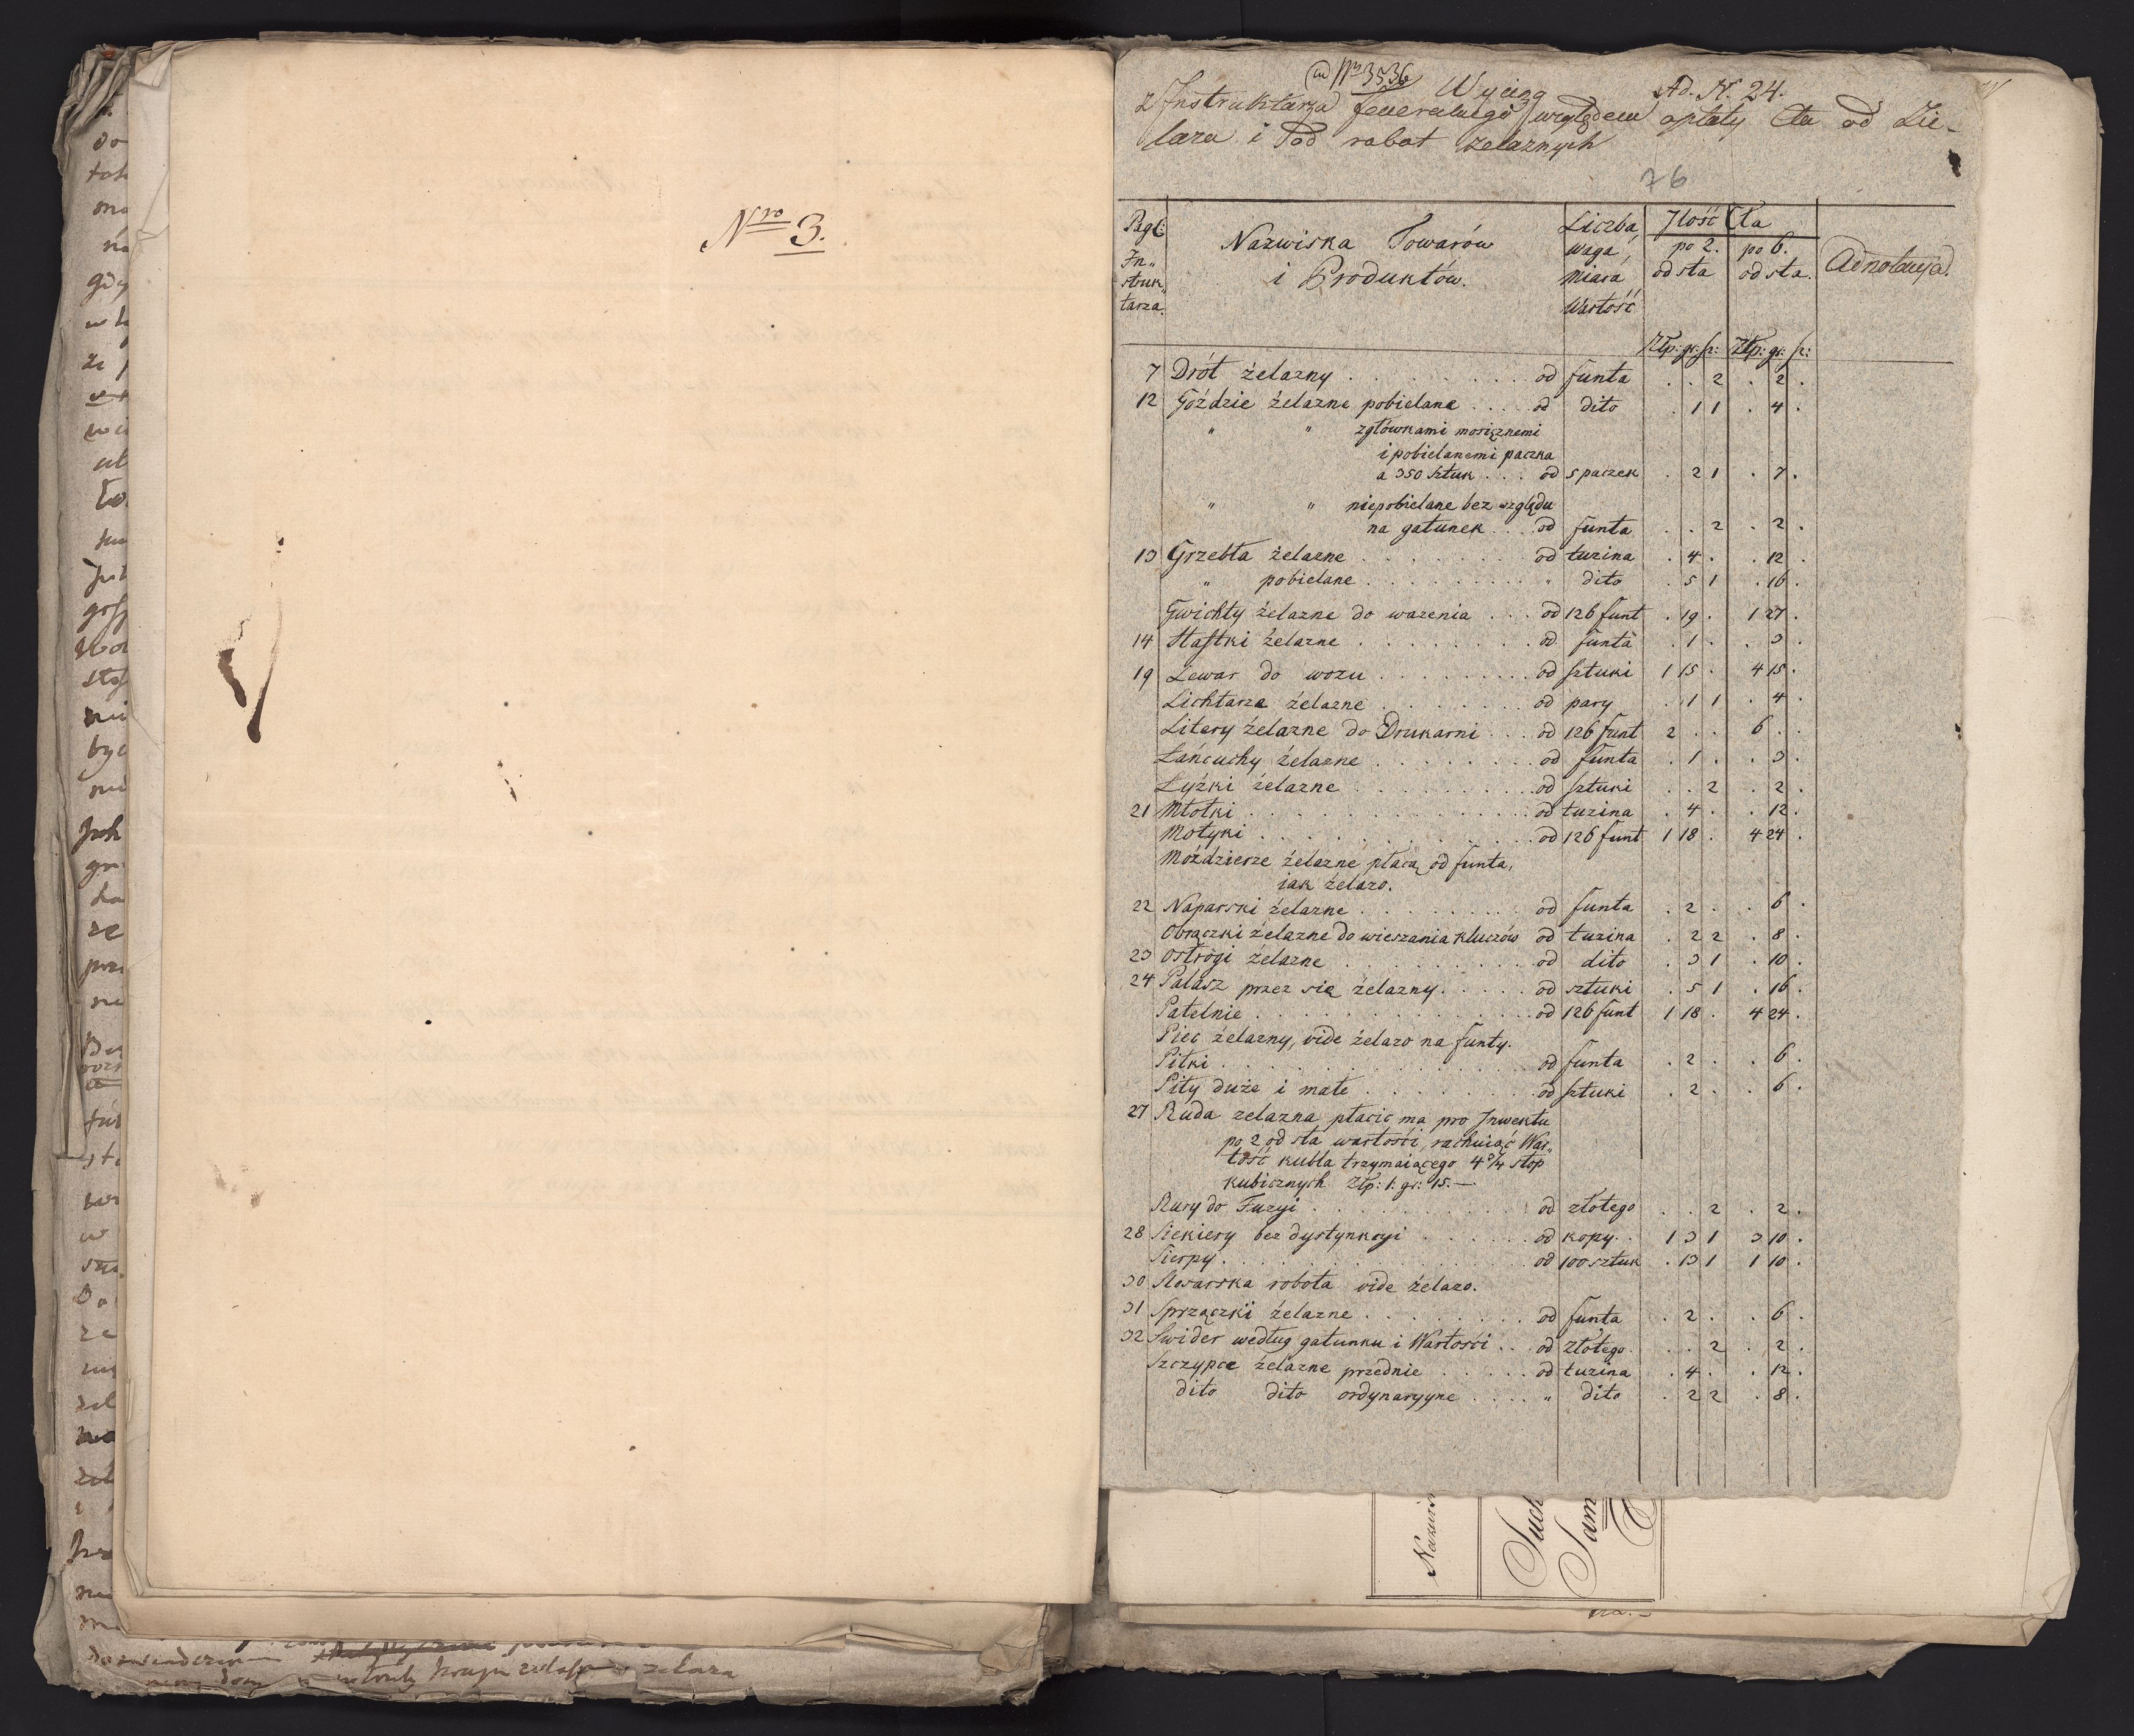 Nro 3.
ad Nro 3536
Wyciąg
Ad. N. 24.
z Instruktarza generalnego względem opłaty Cła od Że-
laza i od robot żelaznych
76
Pag: Instruktarza. Nazwiska Towarów i Produktów. Liczba, waga, miara, Wartość Ilość Cła po 2. od sta po 6. od sta. Adnotacyja.
Złp: gr: sz: Złp: gr: sz:
7 Drót żelazny . . . od funta . . 2 . 2 .
12 Goździe żelazne pobielane . . . od dito . 1 1 . 4 .
" " z główkami mosiężnemi
i pobielanemi paczka
a 350 sztuk . . . od 5 paczek . 2 1 . 7 .
" " niepobielane bez względu
na gatunek . . . od funta . . 2 . 2 .
13 Grzebła żelazne . . . od tuzina . 4 . . 12 .
" pobielane . . . " dito . 5 1 . 16 .
Gwichty żelazne do ważenia . . . od 126 funt . 19 . 1 27 .
14 Haftki żelazne . . . od funta . 1 . . 3 .
19 Lewar do wozu . . . od sztuki 1 15 . 4 15 .
Lichtarze żelazne . . . od pary . 1 1 . 4 .
Litery żelazne do Drukarni . . . od 126 funt 2 . . 6 . .
Łańcuchy żelazne . . . od funta . 1 . . 3 .
Łyżki żelazne . . . od sztuki . . 2 . 2 .
21 Młotki . . . od tuzina . 4 . . 12 .
Motyki . . . od 126 funt 1 18 . 4 24 .
Moździerze żelazne płacą od funta,
iak żelazo.
22 Naparski żelazne . . . od funta . 2 . . 6 .
Obrączki żelazne do wieszania kluczów od tuzina . 2 2 . 8 .
23 Ostrogi żelazne . . . od dito . 3 1 . 10 .
24 Pałasz przez się żelazny . . . od sztuki . 5 1 . 16 .
Patelnie . . . od 126 funt 1 18 . 4 24 .
Piec żelazny, vide żelazo na funty.
Piłki . . . od funta . 2 . . 6 .
Piły duże i małe . . . od sztuki . 2 . . 6 .
27 Ruda żelazna płacić ma pro Inwektu
po 2 od sta wartości, rachuiąc War„
tość kubła trzymaiącego 4 3/4 stop
kubicznych Złp: 1. gr: 15. —
Rury do Fuzyi . . . od złotego . . 2 . 2 .
28 Siekiery bez dystynkcyi . . . od kopy . 1 3 1 3 10 .
Sierpy . . . od 100 sztuk . 13 1 1 10 .
30 Slosarska robota vide żelazo.
31 Sprzączki żelazne . . . od funta . 2 . . 6 .
32 Swider według gatunku i Wartości . . od złotego . . 2 . 2 .
Szczypce żelazne przednie . . . od tuzina . 4 . . 12 .
dito dito ordynaryyne . . . " dito . 2 2 . 8 .